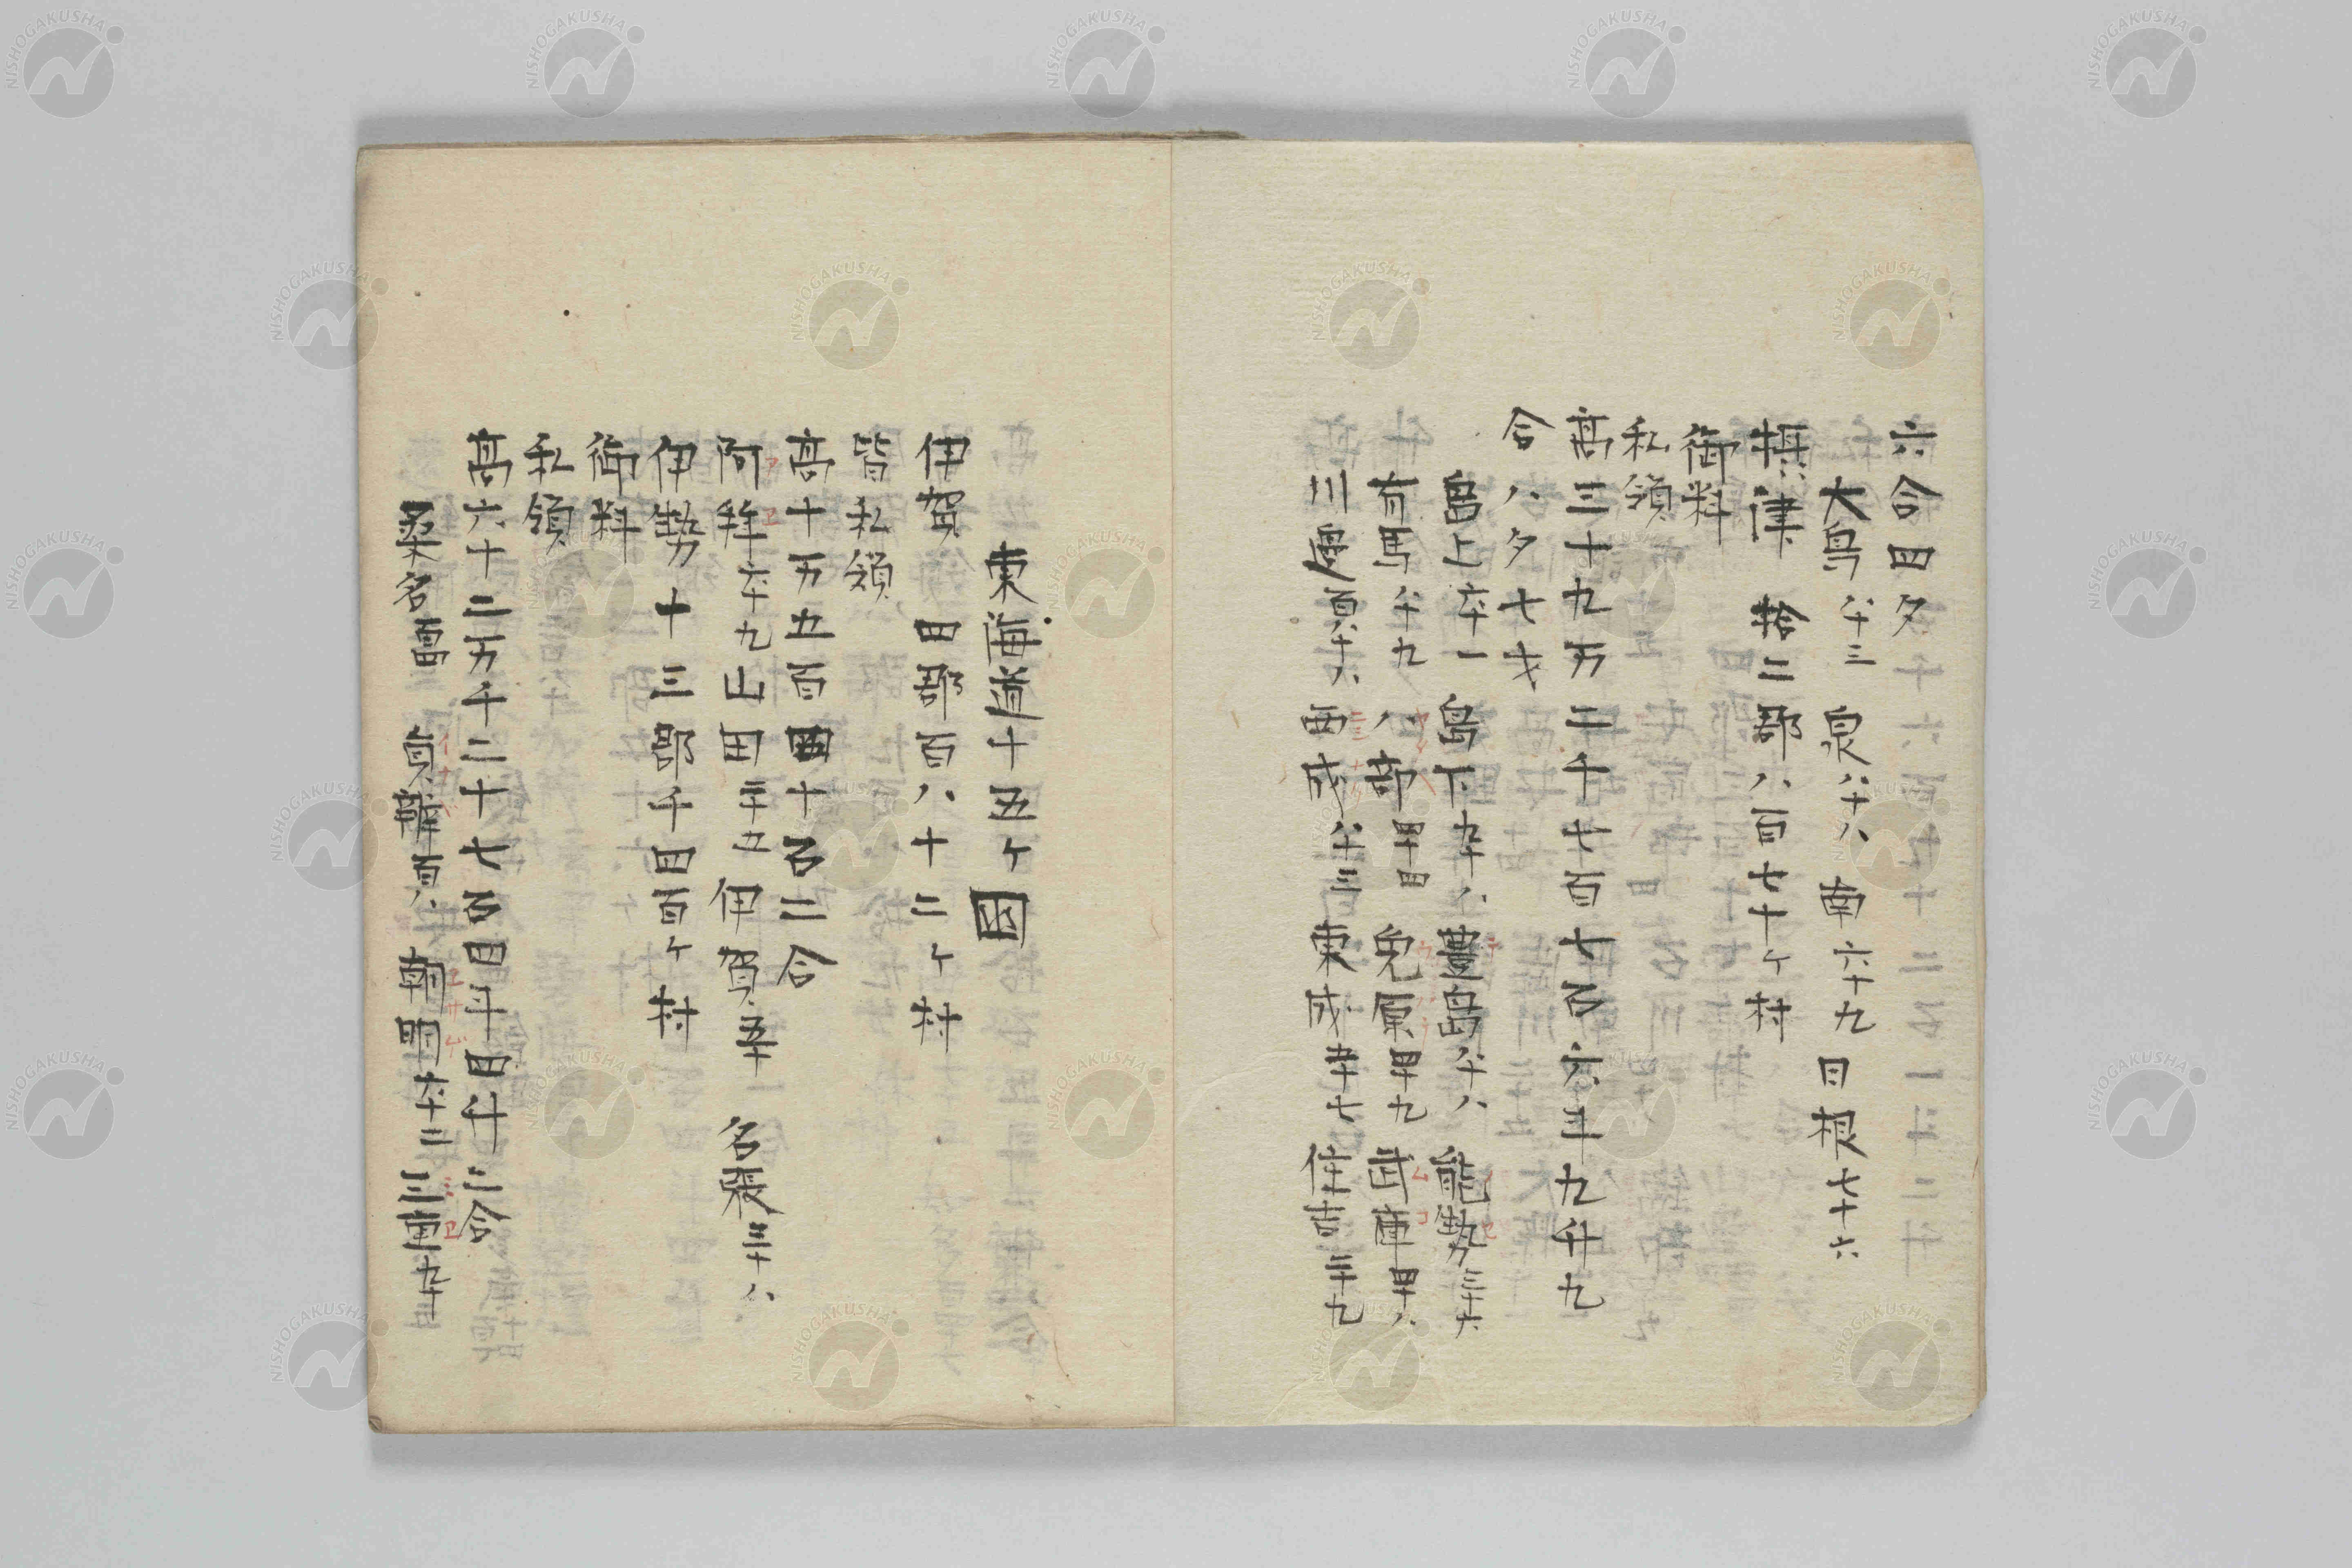 六合四夕
大鳥六十三　泉六十八　南六十九　日根七十六
摂津　拾二郡八百七十ヶ村
御料
私領
高三十九万二千七百七石六斗九升九
合八夕七才
島上六十一　島下九十八　豊島八十八　能勢三十六
有馬八十九　八部四十四　兔原四十九　武庫四十八
川辺百八十八　西成八十三　東成五十七　住吉三十九
東海道十五ヶ国
伊賀　四郡百八十二ヶ村
皆私領
高十万五百四十石二合
阿拝六十九　山田三十五　伊賀五十　名張三十八
伊勢十三郡千四百ヶ村
御料
私領
高六十二万千二十七石四斗四升三合
桑名　員辨百八　朝明六十二　三重九十
NISHOGAKUSHA